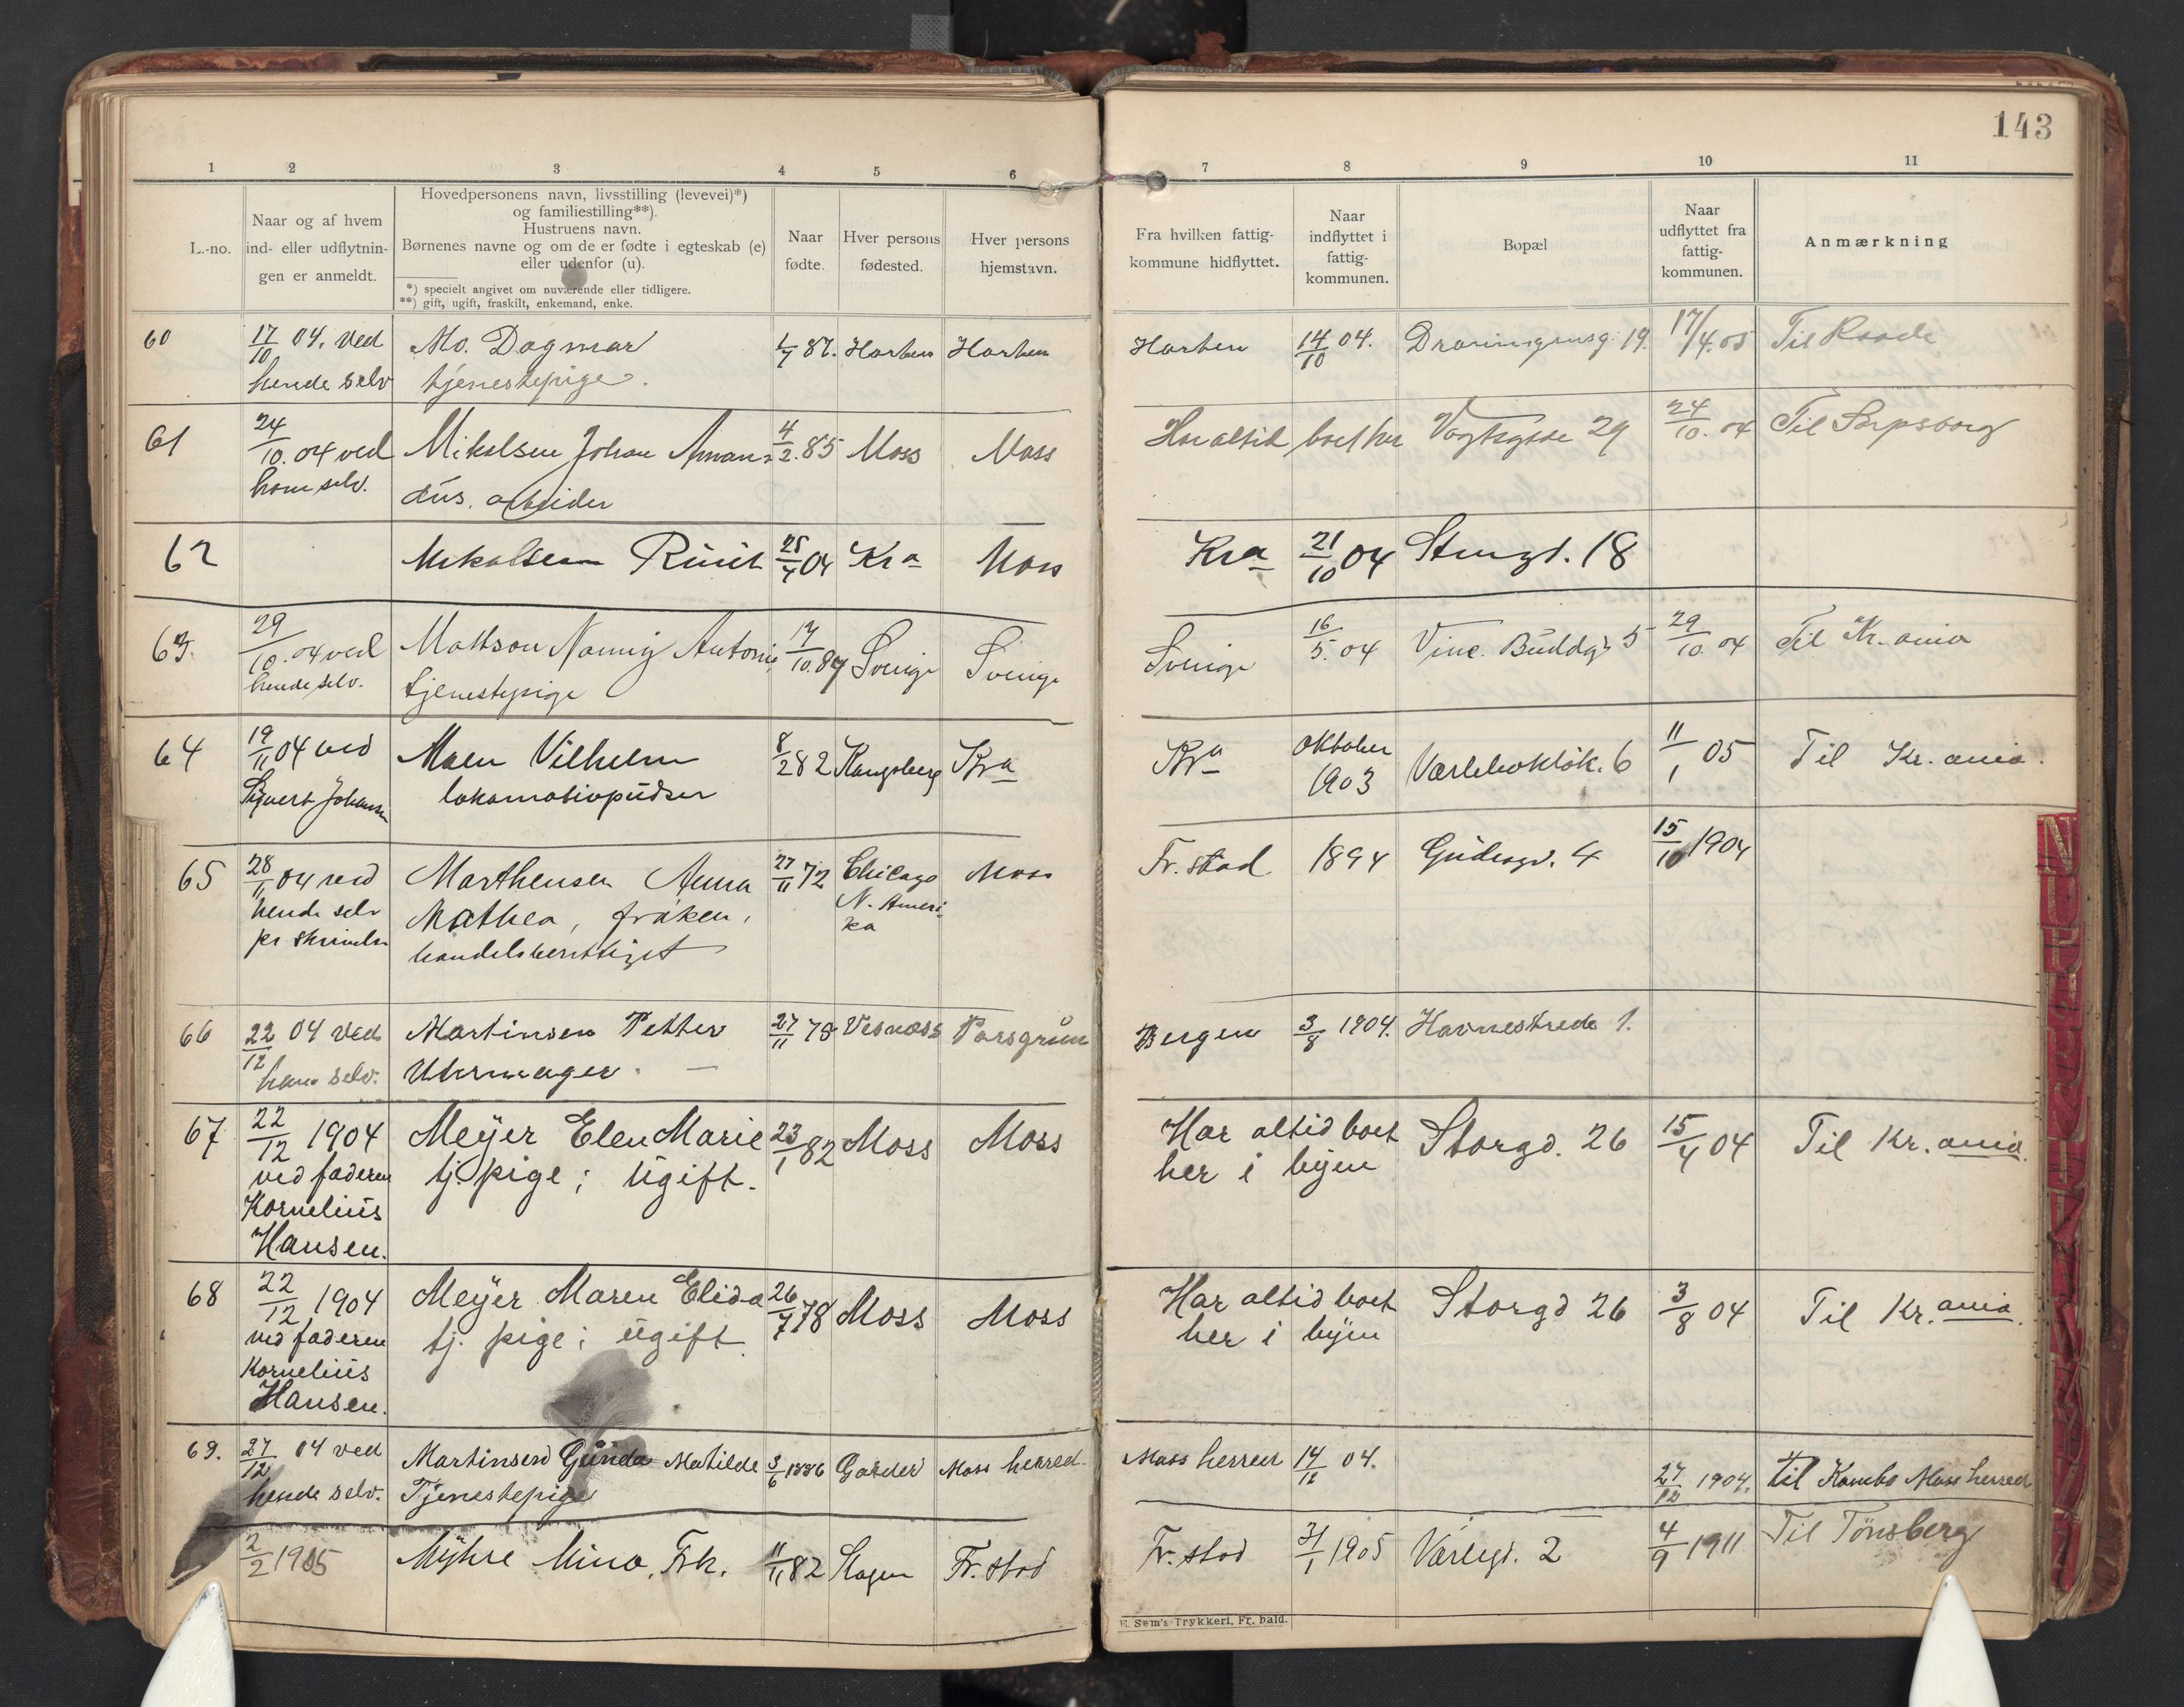 143
1 2 3 4 5 6 7 8 9 10 11
L.-no.
Naar og af hvem
ind- eller udflytnin-
gen er anmeldt.
Hovedpersonens navn, livsstilling (levevei)*)
og familiestilling**).
Hustruens navn.
Børnenes navne og om de er fødte i egteskab (e)
eller udenfor (u).
*) specielt angivet om nuværende eller tidligere.
**) gift, ugift, fraskilt, enkemand, enke.
Naar
fødte.
Hver persons
fødested.
Hver persons
hjemstavn.
Fra hvilken fattig-
kommune hidflyttet.
Naar
indflyttet i
fattig-
kommunen.
Bopæl
Naar
udflyttet fra
fattig-
kommunen.
Anmærkning
60 17/10 04. ved Mo. Dagmar 1/7 87. Horten Horten Horten 14/10 04. 19. 17/4.05 Til Raade
hende selv tjenestepige.
61 24/10.04 ved Mikalsen Johan Aman- 4/2.85 Moss Moss Har altid boet her Vogtsgade 29 24/10.04 Til Sarpsborg
ham selv. dus. arbeider
62 Mikalsen Ruut 04 Kra Moss Kra 21/10 04 Storgd. 18
63. 29/10.04 ved Mattson Antonie 17/10.87 Sverige Sverige Sverige 16/5.04 Vinc. Buddgs 5 29/10.04 Til Kr.ania
hende selv. tjenestepige
64 19/11 04 ved Moen Vilhelm 8/2 82 Kongsberg Kra Kra Oktober 6 11/1 05 Til Kr.ania.
Sigvert Johansen lokomotivpudser 1903
65 28/11 04 ved Marthensen Anna 27/11 72 Chicago Moss Fr.stad 1894 Gudesgd. 4 15/10 1904
hende selv Mathea, frøken, N. Ameri-
pr skrivelse handelsberettiget ka
66 22/12 04 ved Martinsen Petter 27/11 78 Vesnæss Porsgrun Bergen 3/8 1904. Havnestrede 1.
ham selv. Uhrmager. —
67 22/12 1904 Meyer Elen Marie 23/1 82 Moss Moss Har altid boet Storgd. 26 15/4 04 Til Kr.ania.
ved faderen tj. pige; ugift. her i byen
Kornelius
Hansen.
68 22/12 1904 Meyer Maren Elida 26/7 78 Moss Moss Har altid boet Storgd 26 3/8 04 Til Kr.ania.
ved faderen tj. pige; ugift. her i byen
Kornelius
Hansen.
69. 27/12 04 ved Martinsen Gunda Matilde 3/6 1886 Garder Moss herred Moss herred 14/12 04. 27/12 1904. til Kambo Moss herred
hende selv. Tjenestepige
2/2 1905 Myhre Mina, Frk. 11/11 82 Fr.stad Fr.stad 31/1 1905 Varlegd. 2 4/9 1911 Til Tønsberg
E. Sem's Trykkeri, Fr.hald.